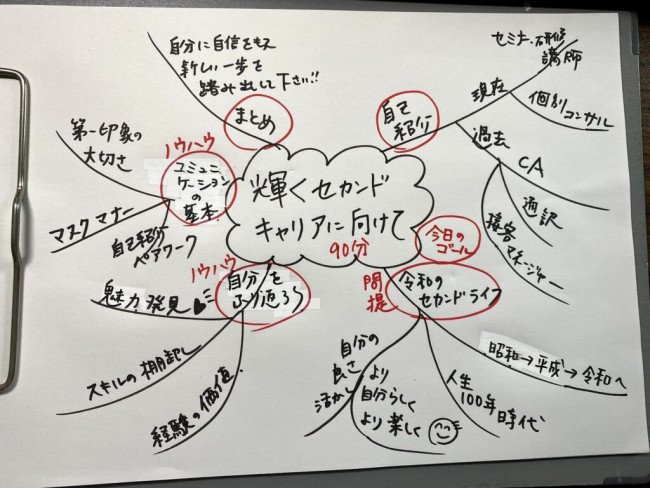 輝くセカンド
キャリアに向けて
90分
自己
紹介
現在
セミナー・研修
講師
個別コンサル
過去
CA
通訳
接客
マネージャー
今日の
ゴール
問
提
令和の
セカンドライフ
昭和→平成→令和へ
人生
100年時代
自分の
良さ
活かし
より
自分らしく
より楽しく
ノウハウ
自分を
ふり返ろう
魅力発見
スキルの棚卸し
経験の価値
ノウハウ
コミュニ
ケーション
の
基本
第一印象の
大切さ
マスクマナー
自己紹介
ペアワーク
まとめ
自分に自信をもって
新しい一歩を
踏み出して下さい!!